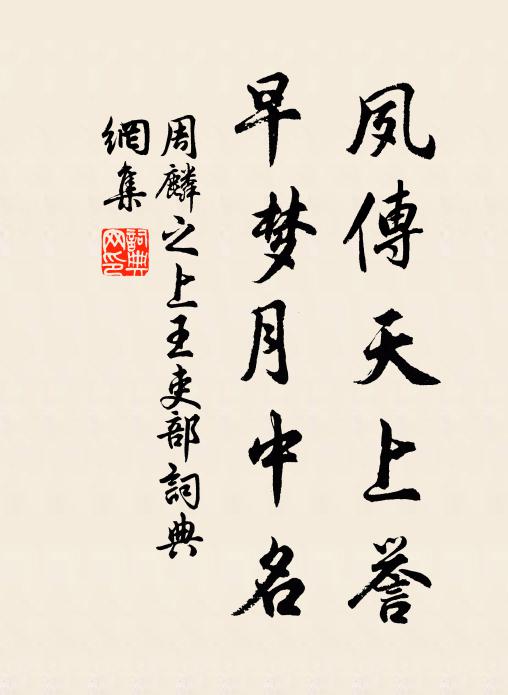 夙傳天上譽
早梦月中名
周麟之上王吏部詞典
網集
詞典
网印